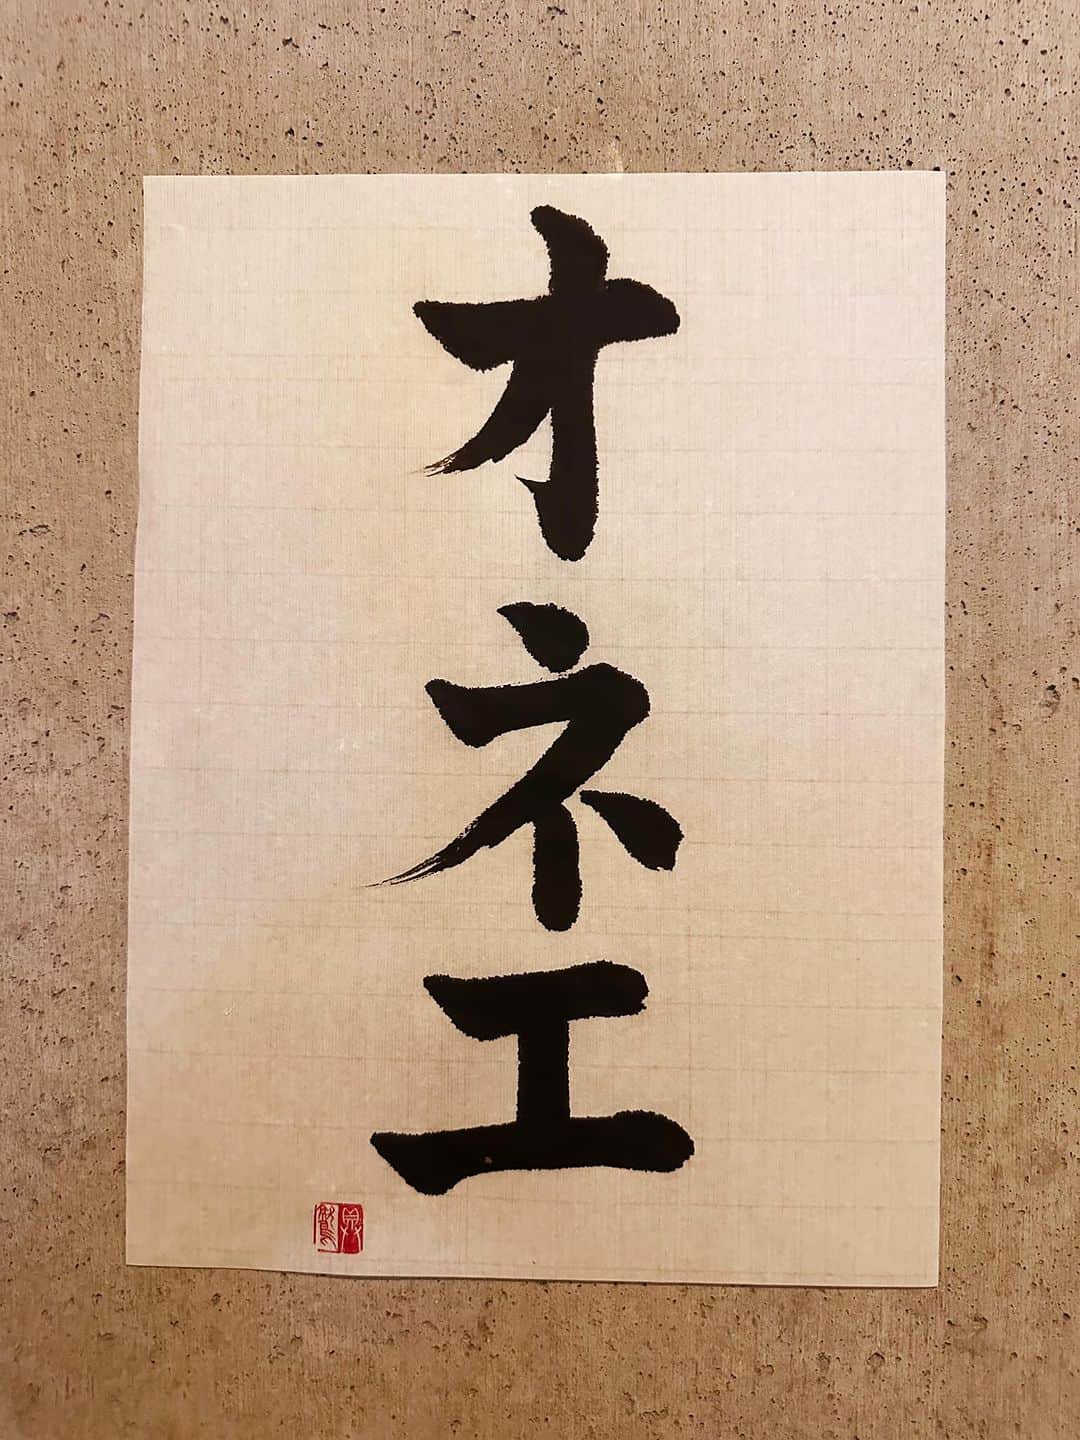 オネエ